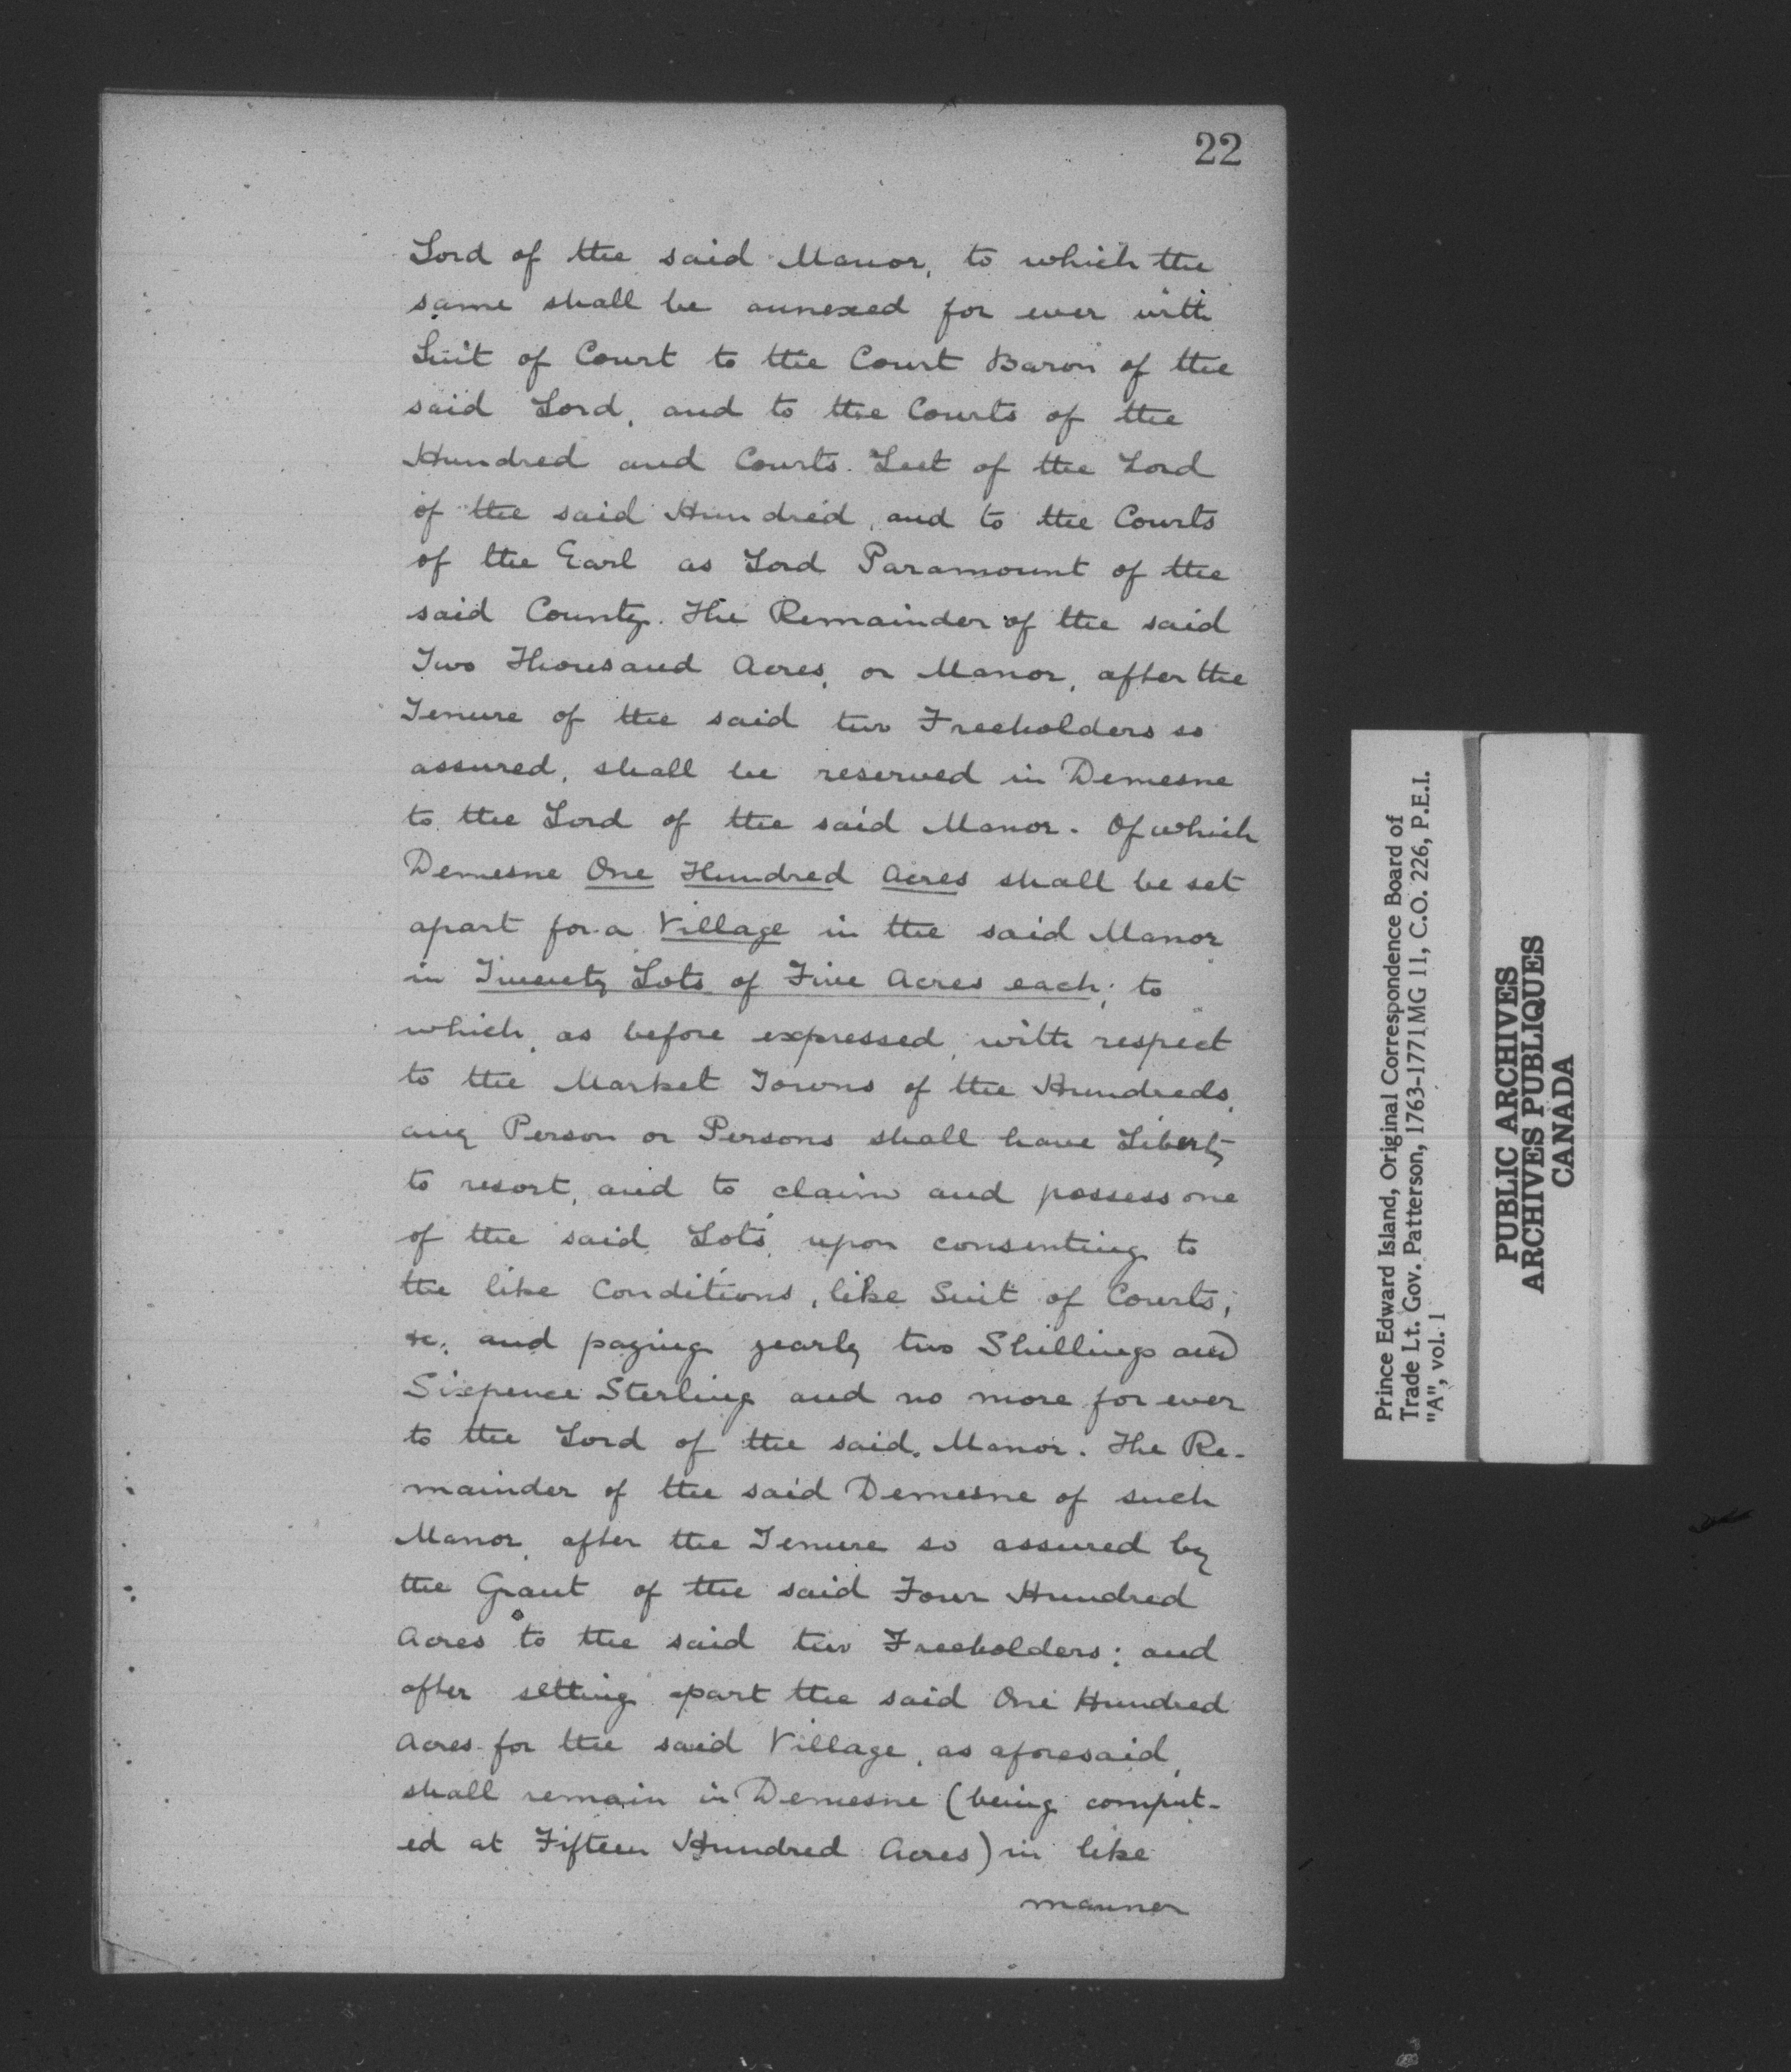 22
Lord of the said Manor, to which the
same shall be annexed for ever with
Suit of Court to the Court Baron of the
said Lord, and to the Courts of the
Hundred and Courts Leet of the Lord
of the said Hundred, and to the Courts
of the Earl as Lord Paramount of the
said County. The Remainder of the said
Two Thousand Acres, or Manor, after the
Tenure of the said two Freeholders so
assured, shall be reserved in Demesne
to the Lord of the said Manor. Of which
Demesne One Hundred Acres shall be set
apart for a Village in the said Manor
in Twenty Lots of Five Acres each; to
which, as before expressed, with respect
to the Market Towns of the Hundreds,
any Person or Persons shall have Liberty
to resort, and to claim and possess one
of the said Lots, upon consenting to
the like Conditions, like Suit of Courts,
&c; and paying yearly two Shillings and
Sixpence Sterling and no more for ever
to the Lord of the said Manor. The Re-
mainder of the said Demesne of such
Manor, after the Tenure so assured by
the Grant of the said Four Hundred
Acres to the said two Freeholders; and
after setting apart the said One Hundred
Acres for the said Village, as aforesaid,
shall remain in Demesne (being comput-
ed at Fifteen Hundred Acres) in like
manner
Prince Edward Island, Original Correspondence Board of
Trade Lt. Gov. Patterson, 1763-1771 MG 11, C.O. 226, P.E.I.
"A", vol. 1
PUBLIC ARCHIVES
ARCHIVES PUBLIQUES
CANADA